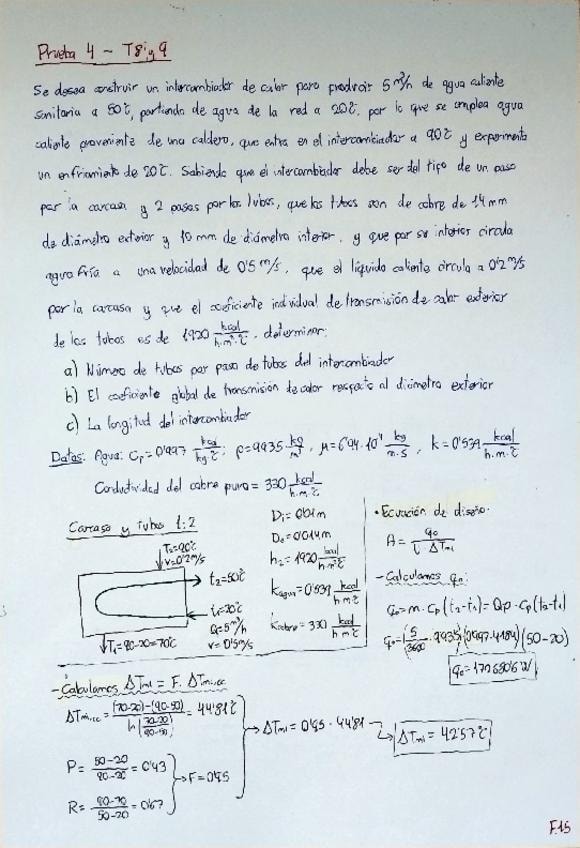 Prueba 4 - T8 y 9
Se desea construir un intercambiador de calor para producir 5 m³/h de agua caliente
sanitaria a 50°C, partiendo de agua de la red a 20°C, por lo que se emplea agua
caliente proveniente de una caldera, que entra en el intercambiador a 90°C y experimenta
un enfriamiento de 20°C. Sabiendo que el intercambiador debe ser del tipo de un paso
por la carcasa y 2 pasos por los tubos, que los tubos son de cobre de 14 mm
de diámetro exterior y 10 mm de diámetro interior, y que por su interior circula
agua fría a una velocidad de 0'5 m/s, que el líquido caliente circula a 0'2 m/s
por la carcasa y que el coeficiente individual de transmisión de calor exterior
de los tubos es de 1920 kcal/h·m²·°C, determinar:
a) Número de tubos por paso de tubos del intercambiador
b) El coeficiente global de transmisión de calor respecto al diámetro exterior
c) La longitud del intercambiador
Datos: Agua: Cp=0'997 kcal/kg·°C; ρ=993'5 kg/m³, μ=6'94·10⁻⁴ kg/m·s, k=0'539 kcal/h·m·°C
Conductividad del cobre puro = 330 kcal/h·m·°C
Carcasa y tubos 1:2
T₁=90°C
v=0'2 m/s
t₂=50°C
t₁=20°C
Q=5 m³/h
v=0'5 m/s
T₂=90-20=70°C
Di=0'01m
Do=0'014m
h₂=1920 kcal/h·m²·°C
kagua=0'539 kcal/h·m·°C
kcobre=330 kcal/h·m·°C
• Ecuación de diseño.
A = q₀/U·ΔTml
- Calculamos q₀:
q₀=m·cp(t₂-t₁)=Qρ·cp(t₂-t₁)
q₀=(5/3600·993'5)(0'997·4184)(50-20)
q₀=172680'6 W
- Calculamos ΔTml = F·ΔTml,cc
ΔTml,cc = (70-20)-(90-50)/ln(70-20/90-50) = 44'81°C
ΔTml=0'95·44'81
ΔTml = 42'57°C
P = 50-20/90-20 = 0'43
F=0'95
R = 90-70/50-20 = 0'67
F.15